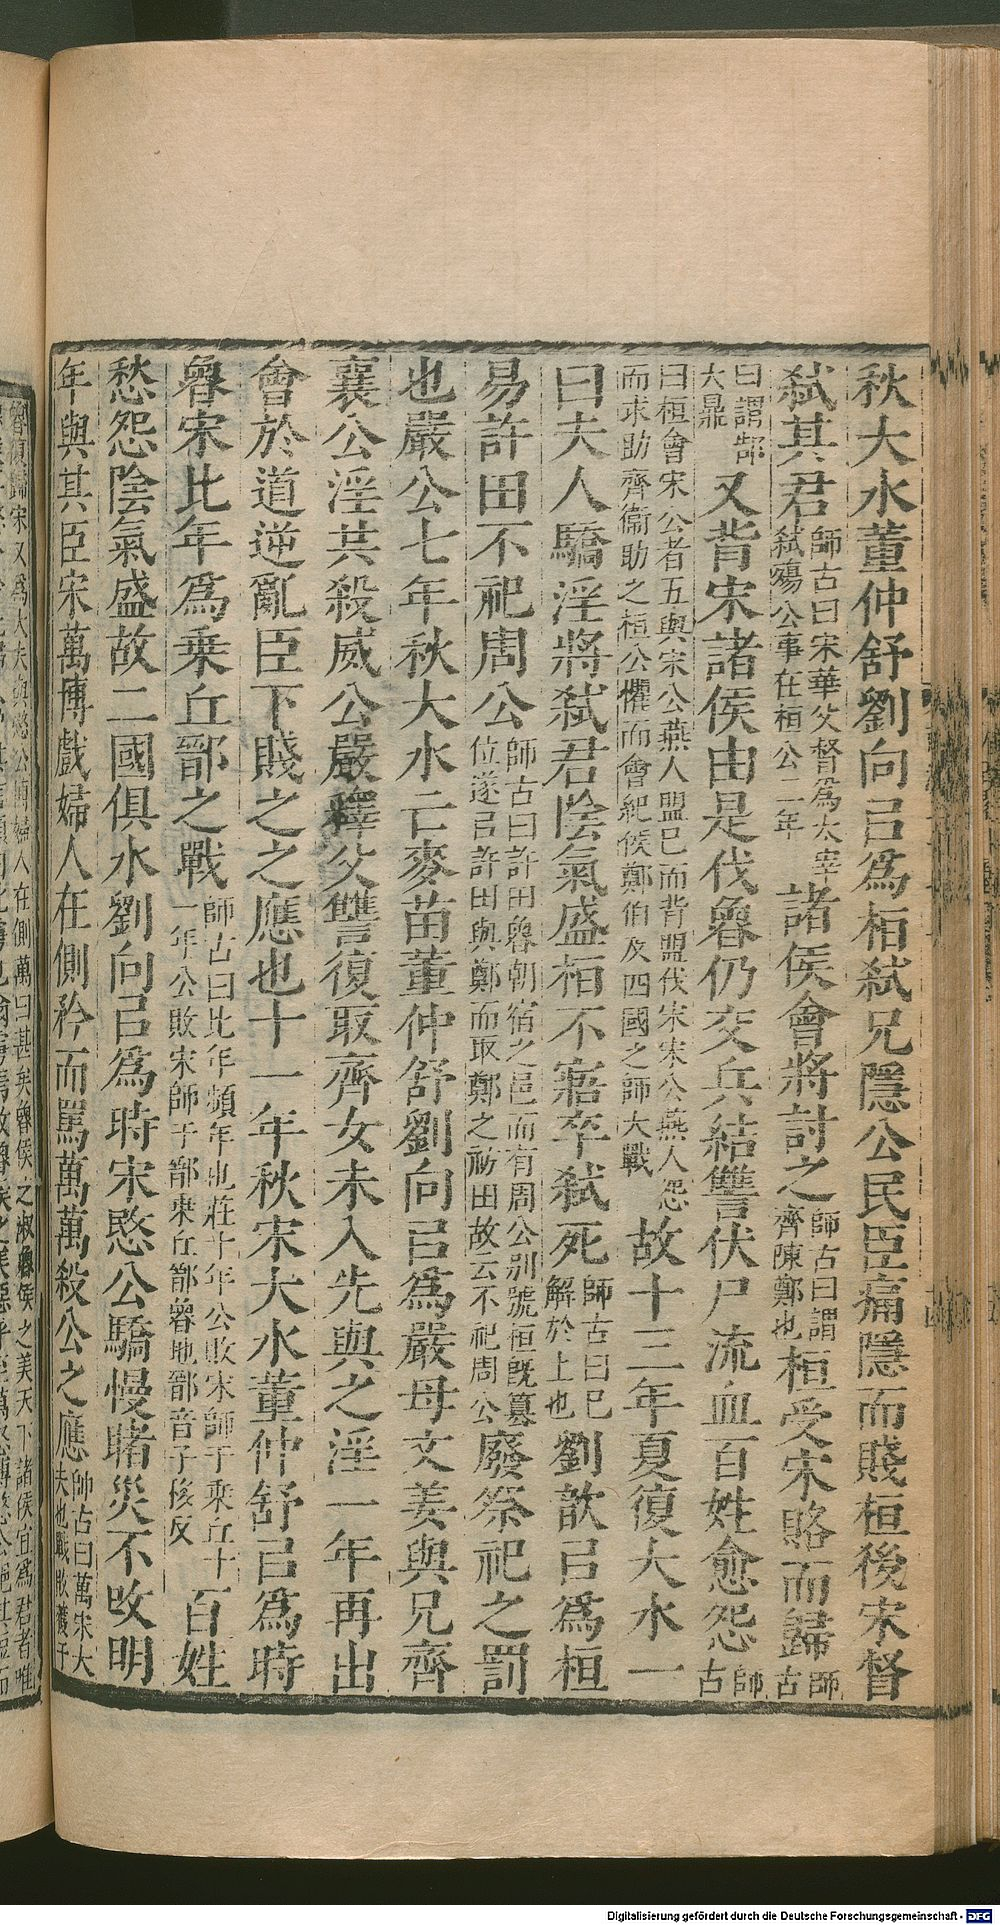 秋大水董仲舒劉向㠯爲桓弑兄隱公民臣痛隱而賤桓後宋督
弑其君師古曰宋華父督爲太宰弑殤公事在桓公二年諸侯會將討之師古曰謂齊陳鄭也桓受宋賂而歸師古
曰謂郜大鼎又背宋諸侯由是伐魯仍交兵結讐伏尸流血百姓愈怨師古
曰桓會宋公者五與宋公燕人盟已而背盟伐宋宋公燕人怨而求助齊衞助之桓公懼而會紀侯鄭伯及四國之師大戰故十三年夏復大水一
曰夫人驕淫將弑君陰氣盛桓不寤卒弑死師古曰已解於上也劉歆㠯爲桓
易許田不祀周公師古曰許田魯朝宿之邑而有周公別號桓旣篡位遂㠯許田與鄭而取鄭之祊田故云不祀周公廢祭祀之罰
也嚴公七年秋大水亡麥苗董仲舒劉向㠯爲嚴母文姜與兄齊
襄公淫共殺威公嚴釋父讐復取齊女未入先與之淫一年再出
會於道逆亂臣下賤之之應也十一年秋宋大水董仲舒㠯爲時
魯宋比年爲乗丘鄑之戰師古曰比年頻年也莊十年公敗宋師于乘丘十一年公敗宋師于鄑乘丘鄑魯地鄑音子移反百姓
愁怨陰氣盛故二國俱水劉向㠯爲時宋愍公驕慢睹災不改明
年與其臣宋萬博戲婦人在側矜而罵萬萬殺公之應師古曰萬宋大夫也戰敗獲于
魯復歸宋又爲大夫與愍公博婦人在側萬曰甚矣魯侯之淑魯侯之美天下諸侯宜爲君者唯
Digitalisierung gefördert durch die Deutsche Forschungsgemeinschaft - DFG